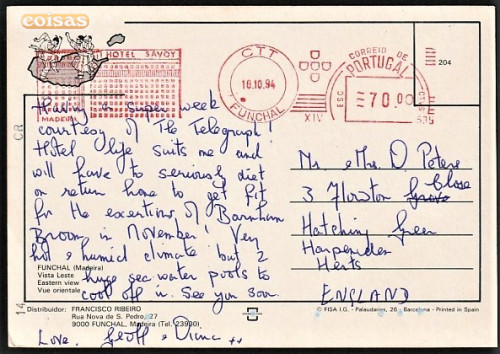 coisas
HOTEL SAVOY
MADEIRA
CTT
18.10.94
FUNCHAL
XIV
CORREIO DE
PORTUGAL
ESC
70,00
204
CR
14
Having a super week
courtesy of The Telegraph!
Hotel life suits me and
will have to seriously diet
on return home to get fit
for the exertions of Barnham
Broom in November! Very
hot & humid climate but 2
huge sea water pools to
cool off in. See you soon.
Love. Geoff & Diana ++
Mr & Mrs D Peters
3 Flowton Grove Close
Hatching Green
Harpenden
Herts
ENGLAND
FUNCHAL (Madeira)
Vista Leste
Eastern view
Vue orientale
Distribuidor: FRANCISCO RIBEIRO
Rua Nova de S. Pedro, 27
9000 FUNCHAL, Madeira (Tel. 23930)
© FISA I.G. - Palaudarias, 26 - Barcelona - Printed in Spain